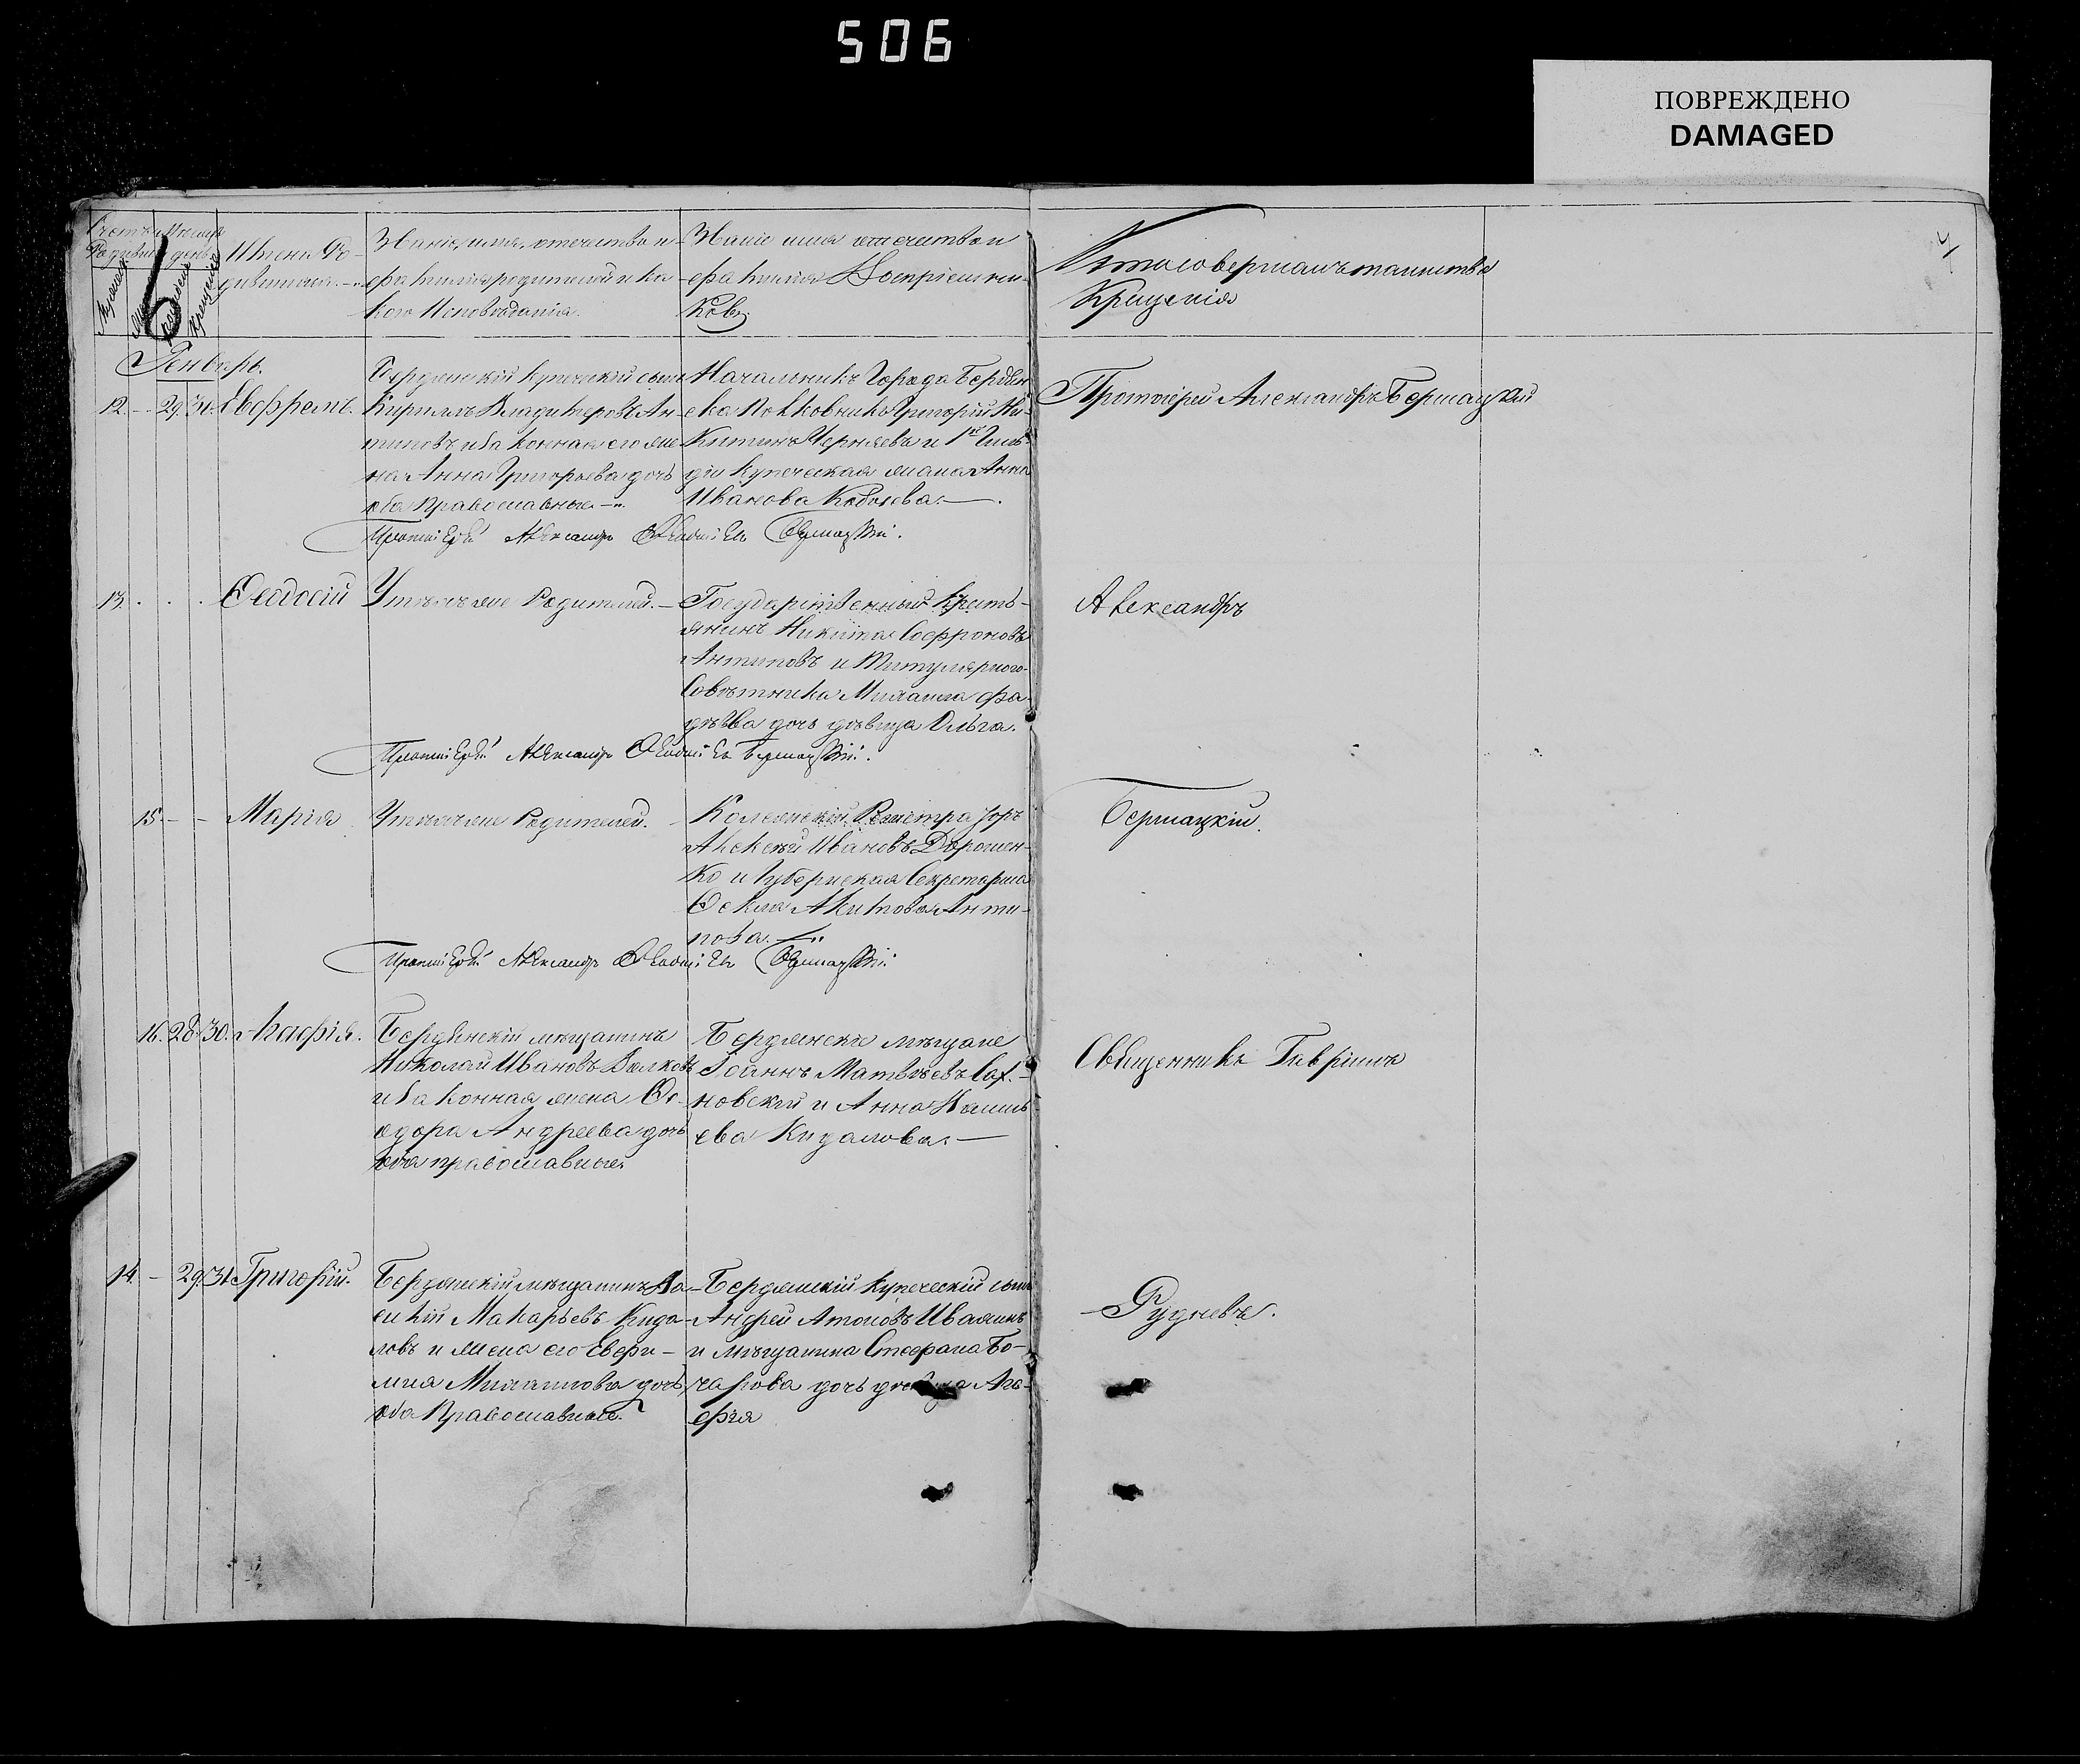 506
ПОВРЕЖДЕНО
DAMAGED
4
Счетъ Родивш
Мѣсяцъ день
Имена Ро-
дившихся.
Званіе, имя, отечество и
фамилія родителей и ка
кого Исповѣданія.
Званіе имя отечество и
фамилія Воспріемни-
ковъ.
Кто совершалъ таинство
Крещенія
Генварь.
12. 29. 31. Евфремъ.
Бердянскій купеческій сынъ
Кирилъ Владиміровъ Ан-
типовъ и законная его же
на Анна Григорьева дочь
оба Православные.
Начальникъ Города Бердян
ска Полковникъ Григорій Ни-
китинъ Черняевъ и 1й Гиль-
діи купеческая жена Анна
Иванова Кобозева.
Протоіерей Александръ Бершацкій
Протоіерей Александръ Бершацкій.
13. Ѳеодосій
Утѣхъ же Родителей.
Государственный Кресть-
янинъ Никита Софроновъ
Антиповъ и Титулярного
Совѣтника Михаила Фа-
дѣева дочь дѣвица Ольга.
Александръ
Протоіерей Александръ Бершацкій.
15. Марія
Утѣхъ же Родителей.
Колежскій Регистраторъ
Алексѣй Ивановъ Дорошен-
ко и Губернская Секретарша
Ѳекла Акимова Анти-
пова.
Бершацкій.
Протоіерей Александръ Бершацкій
16. 28. 30. Агафія.
Бердянскій мѣщанинъ
Николай Ивановъ Волковъ
и законная жена Ѳе-
одора Андреева дочь
оба православные.
Бердянскіе мѣщане
Іоаннъ Матвѣевъ Сах-
новскій и Анна
Кидалова.
Священникъ Гавріилъ
14. 29. 31. Григорій.
Бердянскій мѣщанинъ Ва-
силій Макарьевъ Кида-
ловъ и жена его Евфи-
мія Михаилова дочь
оба Православные.
Бердянскій Купеческій сынъ
Андрей
и мѣщанина Стефана Бо-
чарова дочь дѣвица Ага-
фія
Рудневъ.